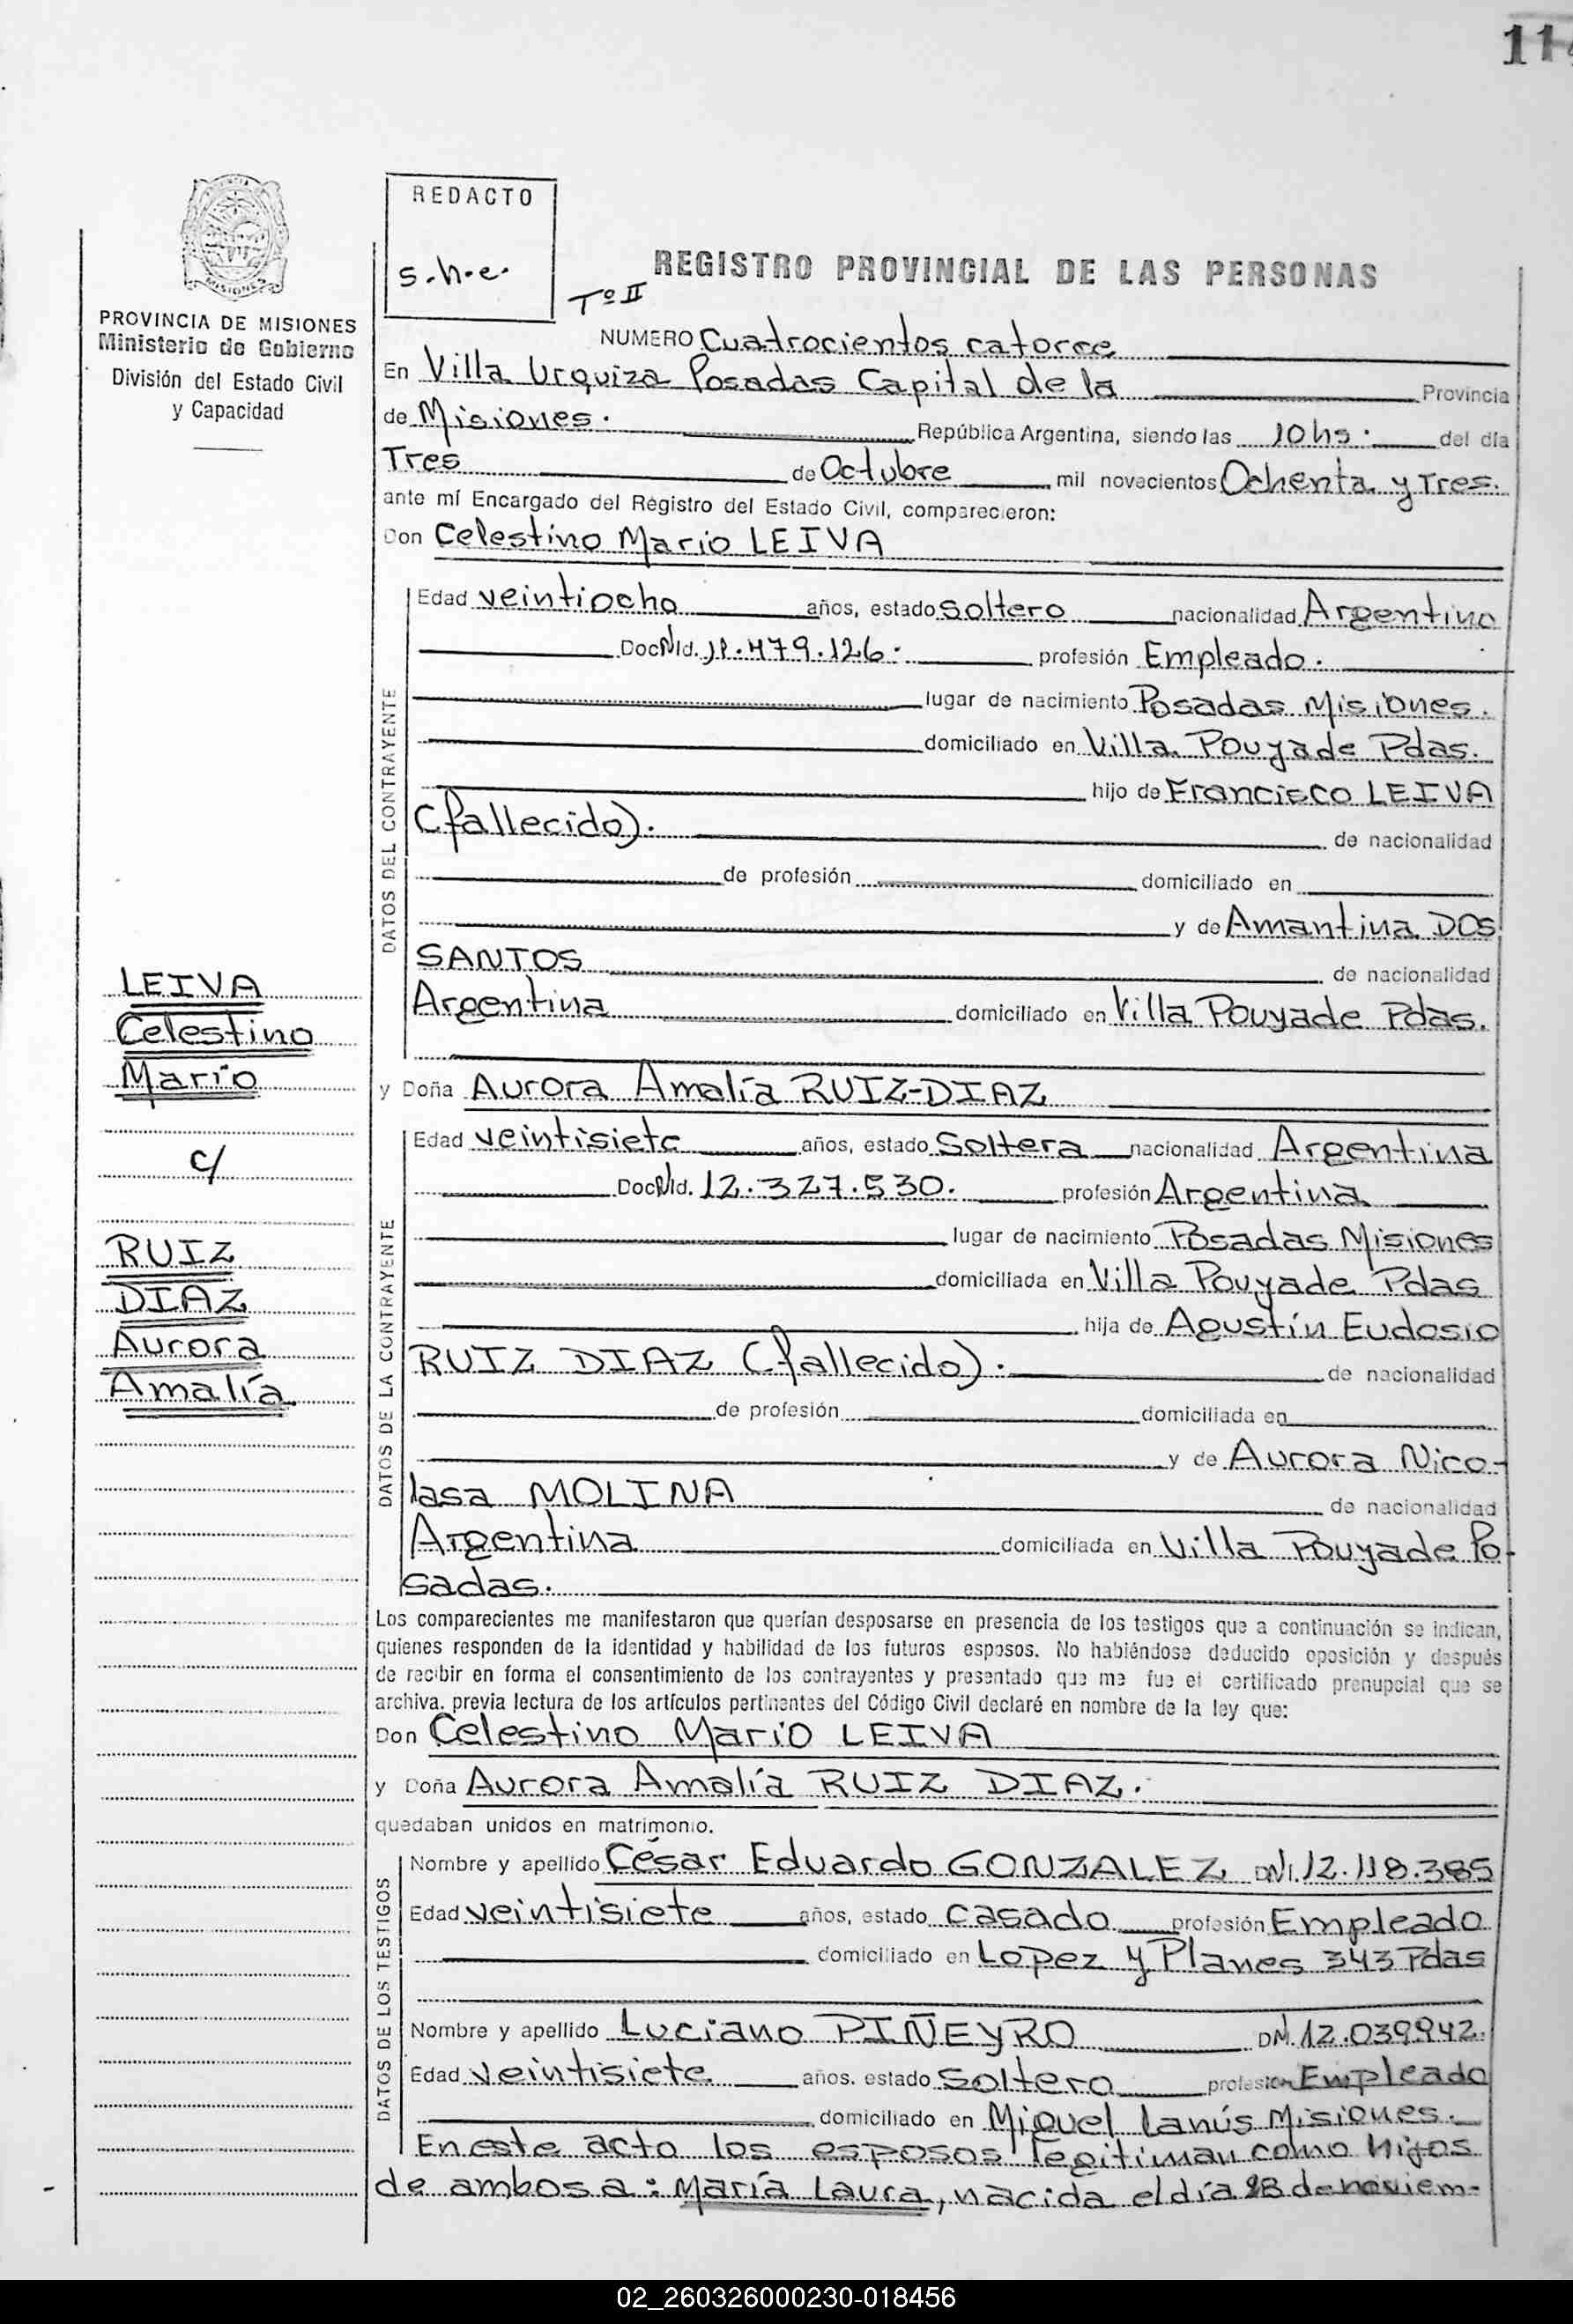 114
REDACTO
s.h.e.
Tº II
REGISTRO PROVINCIAL DE LAS PERSONAS
MISIONES
PROVINCIA DE MISIONES
Ministerio de Gobierno
División del Estado Civil
y Capacidad
NUMERO Cuatrocientos catorce
En Villa Urquiza Posadas Capital de la Provincia
de Misiones. República Argentina, siendo las 10hs. del día
Tres de Octubre mil novecientos Ochenta y Tres.
ante mí Encargado del Registro del Estado Civil, comparecieron:
Don Celestino Mario LEIVA
DATOS DEL CONTRAYENTE
Edad veintiocho años, estado soltero nacionalidad Argentino
Doc. Nld. 11.479.126. profesión Empleado.
lugar de nacimiento Posadas Misiones.
domiciliado en Villa Pouyade Pdas.
hijo de Francisco LEIVA
(fallecido). de nacionalidad
de profesión domiciliado en
y de Amantina DOS
SANTOS de nacionalidad
Argentina domiciliado en Villa Pouyade Pdas.
LEIVA
Celestino
Mario
c/
RUIZ
DIAZ
Aurora
Amalía
y Doña Aurora Amalía RUIZ-DIAZ
DATOS DE LA CONTRAYENTE
Edad veintisiete años, estado Soltera nacionalidad Argentina
Doc. Nld. 12.327.530. profesión Argentina
lugar de nacimiento Posadas Misiones
domiciliada en Villa Pouyade Pdas
hija de Agustín Eudosio
RUIZ DIAZ (fallecido). de nacionalidad
de profesión domiciliada en
y de Aurora Nico-
lasa MOLINA de nacionalidad
Argentina domiciliada en Villa Pouyade Po-
sadas.
Los comparecientes me manifestaron que querían desposarse en presencia de los testigos que a continuación se indican,
quienes responden de la identidad y habilidad de los futuros esposos. No habiéndose deducido oposición y después
de recibir en forma el consentimiento de los contrayentes y presentado que me fue el certificado prenupcial que se
archiva, previa lectura de los artículos pertinentes del Código Civil declaré en nombre de la ley que:
Don Celestino Mario LEIVA
y Doña Aurora Amalía RUIZ DIAZ.
quedaban unidos en matrimonio.
DATOS DE LOS TESTIGOS
Nombre y apellido César Eduardo GONZALEZ DNI. 12.118.385
Edad veintisiete años, estado Casado profesión Empleado
domiciliado en Lopez y Planes 343 Pdas
Nombre y apellido Luciano PIÑEYRO DNI. 12.039942.
Edad veintisiete años, estado Soltero profesión Empleado
domiciliado en Miguel Lanús Misiones.
En este acto los esposos legitiman como hijos
de ambos a: María Laura, nacida el día 28 de noviem-
02_260326000230-018456